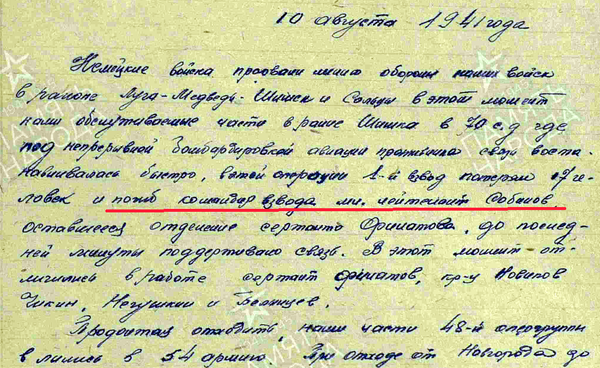 10 августа 1941 года
Немецкие войска прорвали линию обороны наших войск
в районе Луга-Медведь-Шимск и Сольцы в этот момент
нами обслуживаемые части в районе Шимска в 70 с.д где
под непрерывной бомбардировкой авиации противника связь воста-
навливалась быстро, в этой операции 1-й взвод потерял 17 че-
ловек и погиб командир взвода мл. лейтенант Собанов,
оставшееся отделение сержанта Филатова, до послед-
ней минуты поддерживало связь. В этот момент от-
личились в работе сержант Филатов, кр-ц Новиков
Чикин, Негушкин и
Продолжая отходить, наши части 48-й опергруппы
влились в 54 армию. При отходе от Новгорода до